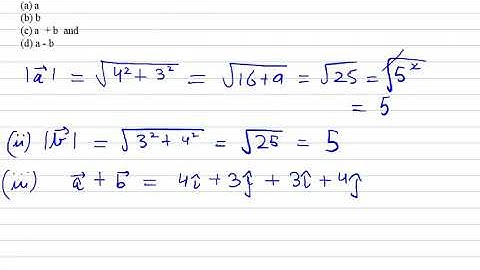 (a) a
(b) b
(c) a + b and
(d) a - b
|a⃗| = √4² + 3² = √16+9 = √25 = √5²
= 5
(ii) |b⃗| = √3² + 4² = √25 = 5
(iii) a⃗ + b⃗ = 4î + 3ĵ + 3î + 4ĵ